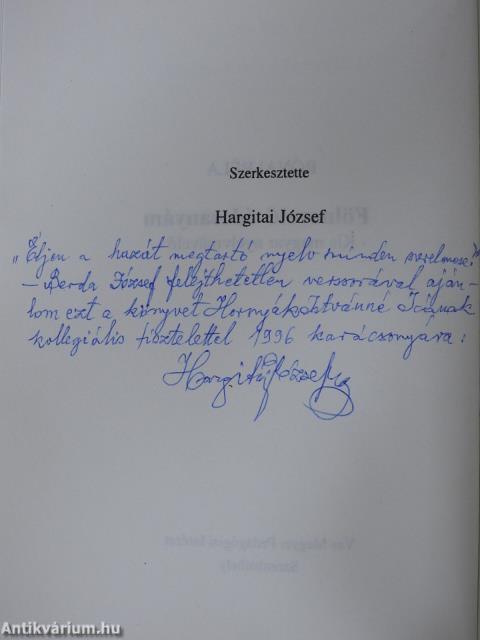 Szerkesztette
Hargitai József
„Éljen a hazát megtartó nyelv minden szerelmese!"
– Berda József felejthetetlen verssorával aján-
lom ezt a könyvet Hornyák Istvánné Icának
kollegiális tisztelettel 1996 karácsonyára:
Hargitai József
Antikvárium.hu